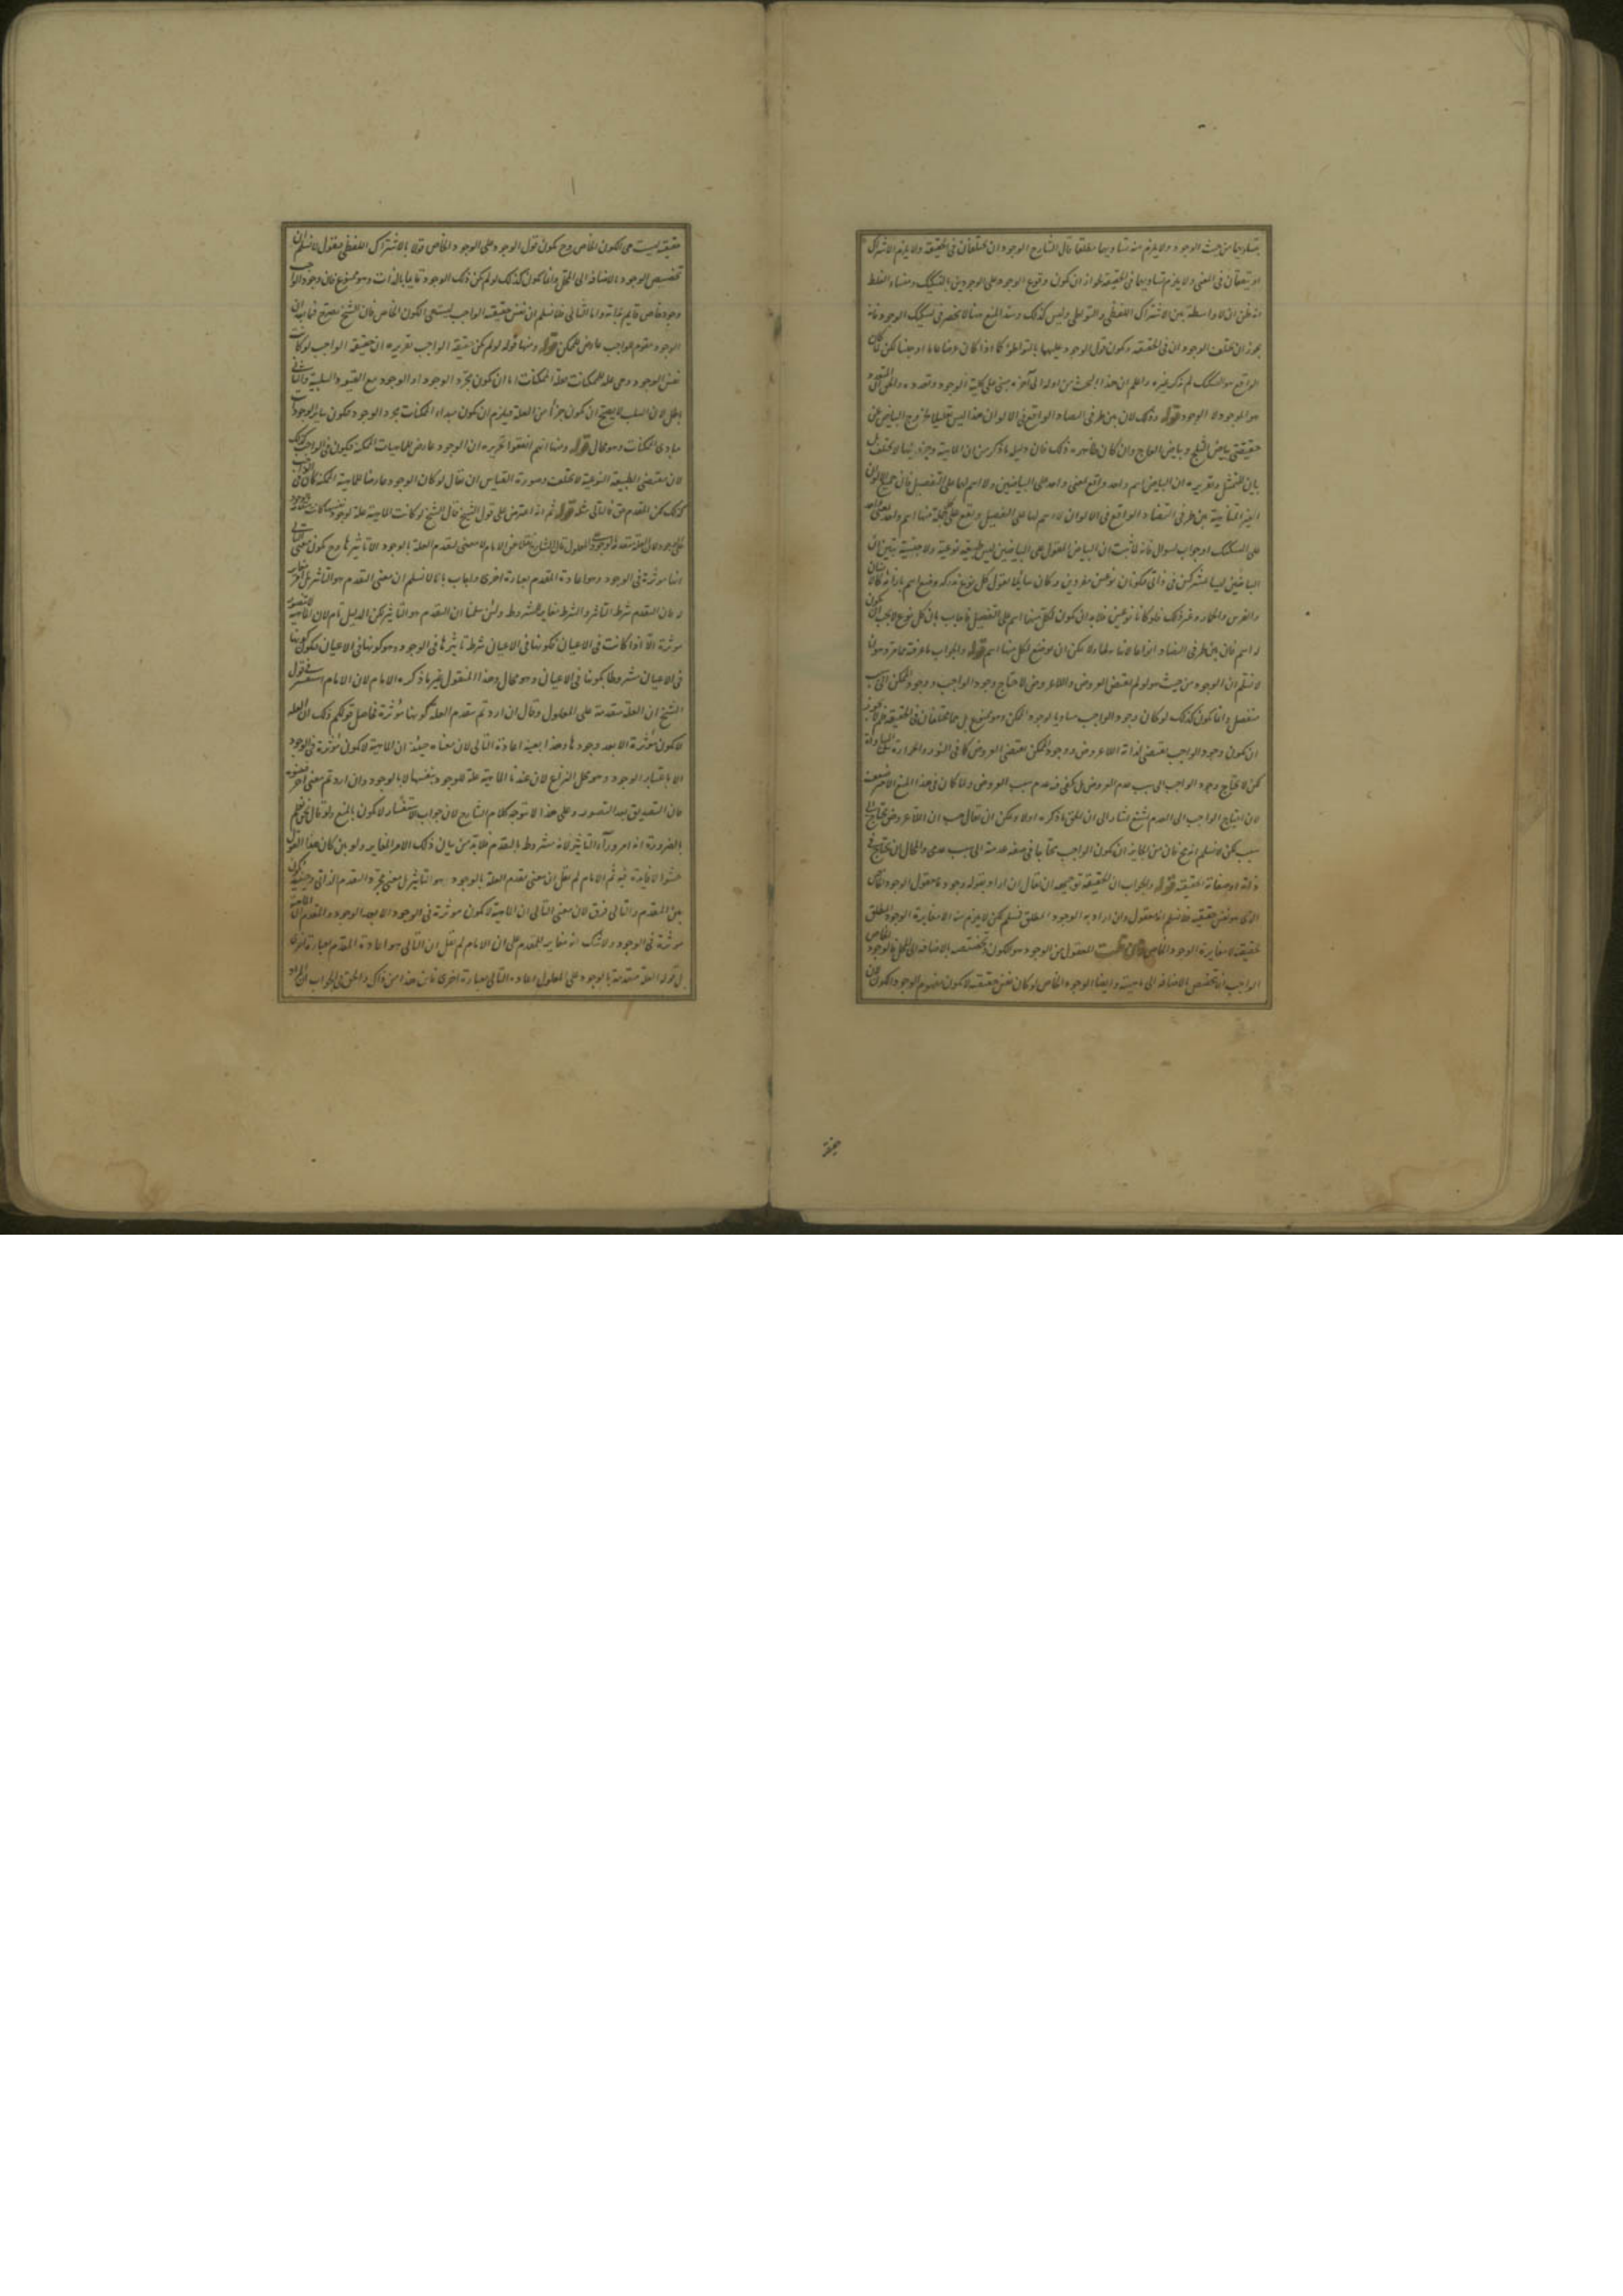 بتساويهما من حيث الوجود ولا يلزم منه تساويهما مطلقا قال الشارح الوجودان مختلفان في الحقيقة ولا يلزم الاشتراك
او يتفقان في المعنى ولا يلزم تساويهما في الحقيقة لجواز ان يكون وقوع الوجود على الوجودين بالتشكيك ومنشاء الغلط
انه ظن ان لا واسطة بين الاشتراك اللفظي والتواطي وليس كذلك وسند المنع هنا لا ينحصر في تشكيك الوجود فانه
يجوز ان يختلف الوجودان في الحقيقة ويكون قول الوجود عليهما بالتواطؤ كما اذا كان عرضا عاما او جنسا لكن لما كان
الواقع هو التشكيك لم يذكر غيره واعلم ان هذا البحث من اوله الى آخره مبني على كلية الوجود وتعدده والحق ان
هو الموجود لا الوجود قوله وذلك لان بين طرفي التضاد الواقع في الالوان هذا ليس تعليلا لخروج البياض عن
حقيقتي بياض الثلج وبياض العاج وان كان ظاهره ذلك فان دليله ما ذكر من ان الماهية وجزئيتها لا يختلف بل
بيان للتمثيل وتقريره ان البياض اسم واحد واقع بمعنى واحد على البياضين ولا اسم لهما على التفصيل فان جميع الالوان
الغير المتناهية بين طرفي التضاد الواقع في الالوان لا اسم لها على التفصيل ويقع على كل جملة منها اسم واحد بمعنى واحد
على التشكيك او جواب لسؤال فانه لما ثبت ان البياض المقول على البياضين ليس طبيعة نوعية ولا جنسية تبين ان
البياضين ليسا مشتركين في ذاتي فيكونان نوعين مفردين وكان سائلا يقول كل نوع ندركه وضع اسم بازائه كالانسان
والفرس والحمار وغير ذلك فلو كانا نوعين فلا بد ان يكون لكل منهما اسم على التفصيل فاجاب بان كل نوع لا يجب ان يكون
له اسم فان بين طرفي التضاد انواعا لا نهاية لها ولا يمكن ان يوضع لكل منها اسم قوله والجواب ما عرفته مما مر وهو انا
لا نسلم ان الوجود من حيث هو لو لم يقتض العروض واللاعروض لاحتاج وجود الواجب ووجود الممكن الى سبب
منفصل وانما يكون كذلك لو كان وجود الواجب مساويا لوجود الممكن وهو ممنوع بل هما مختلفان في الحقيقة فلم لا يجوز
ان يكون وجود الواجب يقتضي لذاته اللاعروض ووجود الممكن يقتضي العروض كما في النور والحرارة
لكن لا يحتاج وجود الواجب الى سبب عدم العروض بل يكفي فيه عدم سبب العروض ولما كان في هذا المنع الاخير ضعف
لان احتياج الواجب الى العدم اشنع اشار الى ان الحق ما ذكره اولا ويمكن ان يقال هب ان اللاعروض يحتاج الى
سبب لكن لا نسلم انه مح فان من الجايز ان يكون الواجب محتاجا في صفة عدمية الى سبب عدمي والمحال ان يحتاج في
ذاته او صفاته الحقيقية قوله والجواب ان الحقيقة توجيهه ان يقال ان اراد بقوله وجوده معقول الوجود الخاص
الذي هو نفس حقيقته فلا نسلم انه معقول وان اراد به الوجود المطلق فمسلم لكن لا يلزم منه الا مغايرة الوجود المطلق
لحقيقته لا مغايرة الوجود الخاص فان قلت المعقول من الوجود هو الكون وتخصصه بالاضافة الى المحل فالوجود الخاص
الواجب انه تخصص بالاضافة الى ماهيته وايضا الوجود الخاص لو كان نفس حقيقته لا يكون مفهوم الوجود والكون فان
حقيقته ليست هي الكون الخاص وح يكون قول الوجود على الوجود الخاص قولا بالاشتراك اللفظي فنقول لا نسلم ان
تخصيص الوجود بالاضافة الى المحل وانما يكون كذلك لو لم يكن ذلك الوجود قايما بالذات وهو ممنوع فان وجود الواجب
وجود خاص قايم بذاته واما الثاني فلا نسلم ان نفس حقيقة الواجب ليست هي الكون الخاص فان الشيخ
الوجود مقوم للواجب عارض للممكن قوله ومنها قوله لو لم يكن حقيقة الواجب تقريره ان حقيقة الواجب لو كانت
نفس الوجود وهي علة للممكنات فعلة الممكنات اما ان يكون مجرد الوجود او الوجود مع القيود السلبية والثاني
باطل لان السلب لا يصح ان يكون جزأ من العلة فيلزم ان يكون مبداء الممكنات مجرد الوجود فيكون ساير الوجودات
مبادي الممكنات وهو محال قوله ومنها انهم اتفقوا تحريره ان الوجود عارض للماهيات الممكنة فيكون في الواجب كذلك
لان مقتضى الطبيعة النوعية لا يختلف وصورة القياس ان يقال لو كان الوجود عارضا للماهية الممكنة كان في الواجب
كذلك لكن المقدم حق فالتالي مثله قوله ثم انه اعترض على قول الشيخ قال الشيخ لو كانت الماهية علة لوجود نفسها كانت متقدمة
على الوجود لان العلة متقدمة بالوجود على المعلول قال الشارح نقلا عن الامام لا معنى لتقدم العلة بالوجود الا تاثيرها وح يكون معنى التالي
انها مؤثرة في الوجود وهو اعادة المقدم بعبارة اخرى واجاب بانا لا نسلم ان معنى التقدم هو التاثير بل
فان التقدم شرط التاثير والشرط مغاير للمشروط ولئن سلمنا ان التقدم هو التاثير لكن الدليل تام لان الماهية لا تتصور
مؤثرة الا اذا كانت في الاعيان فكونها في الاعيان شرط تاثيرها في الوجود وهو كونها في الاعيان فيكون كونها
في الاعيان مشروطا بكونها في الاعيان وهو محال وهذا المنقول غير ما ذكره الامام لان الامام استفسر في قول
الشيخ ان العلة متقدمة على المعلول وقال ان اردتم بتقدم العلة كونها مؤثرة فحاصل قولكم ذلك ان العلة
لا يكون مؤثرة الا بعد وجودها وهذا بعينه اعادة التالي لان معناه حينئذ ان الماهية لا يكون مؤثرة في الوجود
الا باعتبار الوجود وهو محل النزاع لان عندنا الماهية علة للوجود بنفسها لا بالوجود وان اردتم معنى آخر
فان التصديق بعد التصور وعلى هذا لا يتوجه كلام الشارح لان جواب الاستفسار لا يكون بالمنع ولو قال نحن نعلم
بالضرورة انه امر وراء التاثير لانه مشروط بالتقدم فلا بد من بيان ذلك الامر المغاير ولو بين كان هذا القول
حشوا لا فايدة فيه ثم الامام لم يقل ان معنى تقدم العلة بالوجود هو التاثير بل معنى مجرد التقدم الذاتي وحينئذ يكون
بين المقدم والتالي فرق لان معنى التالي ان الماهية لا يكون مؤثرة في الوجود الا بعد الوجود والمقدم ان الماهية
مؤثرة في الوجود ولا شك انه مغاير للمقدم على ان الامام لم يقل ان التالي هو اعادة المقدم بعبارة اخرى
بل قوله العلة متقدمة بالوجود على المعلول اعادة التالي بعبارة اخرى فاين هذا من ذاك والحق في الجواب ان المراد